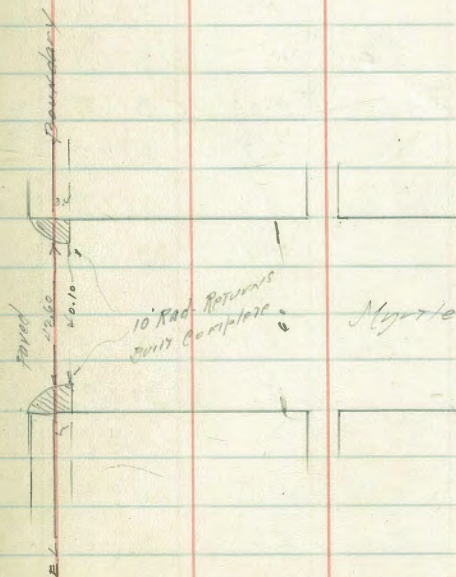 Boundary
Paved
40.10
10' Rad. Returns
Built Complete
60
Myrtle